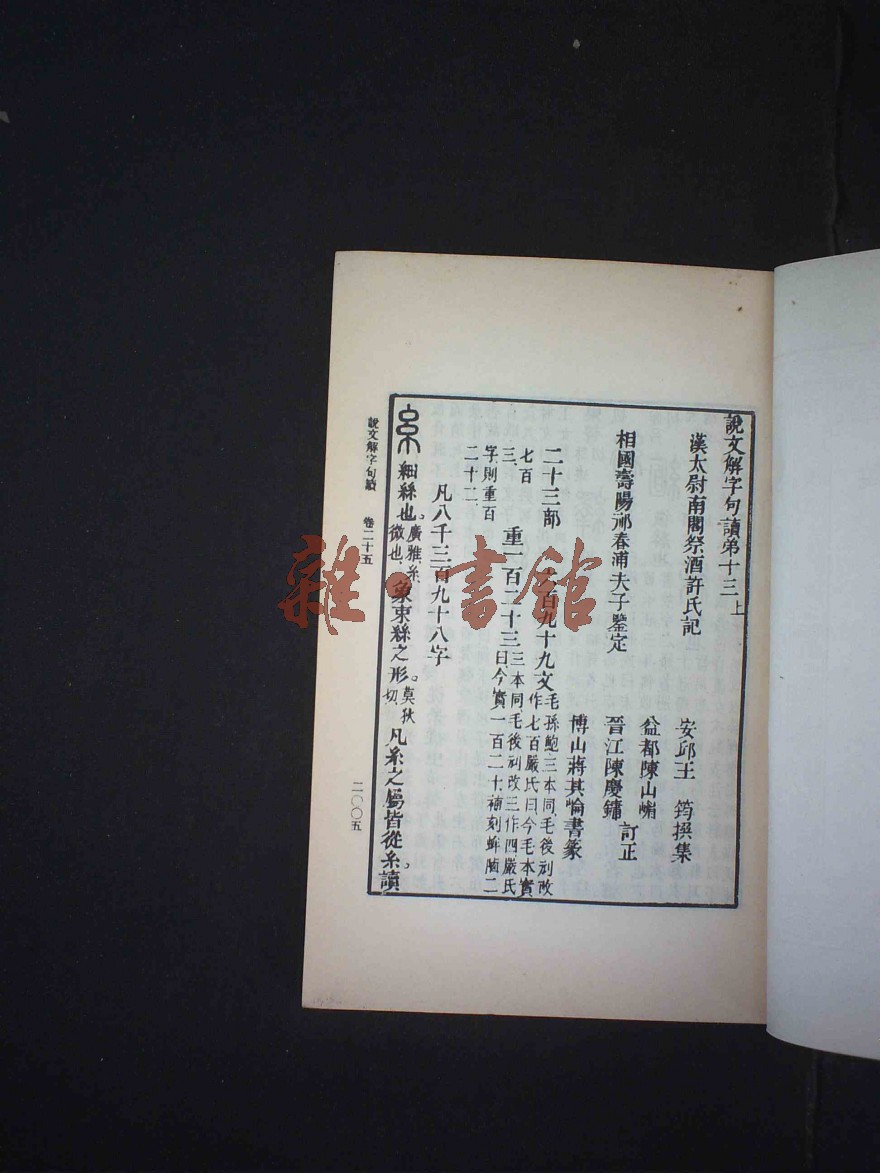 說文解字句讀弟十三上
漢太尉南閣祭酒許氏記
安邱王 筠撰集
相國壽陽祁春浦夫子鑒定
益都陳山嵋
晉江陳慶鏞 訂正
博山蔣其崘書篆
二十三部
百九十九文
毛孫鮑三本同毛後刓改
作七百嚴氏曰今毛本實
七百
三
重一百二十三
三本同毛後刓改三作四嚴氏
曰今實一百二十補刻蚌陋二
字則重百
二十二
凡八千三百九十八字
糸 細絲也。
廣雅糸
微也
象束絲之形。
莫狄
切
凡糸之屬皆從糸。讀
說文解字句讀 卷二十五
二〇〇五
雜·書館